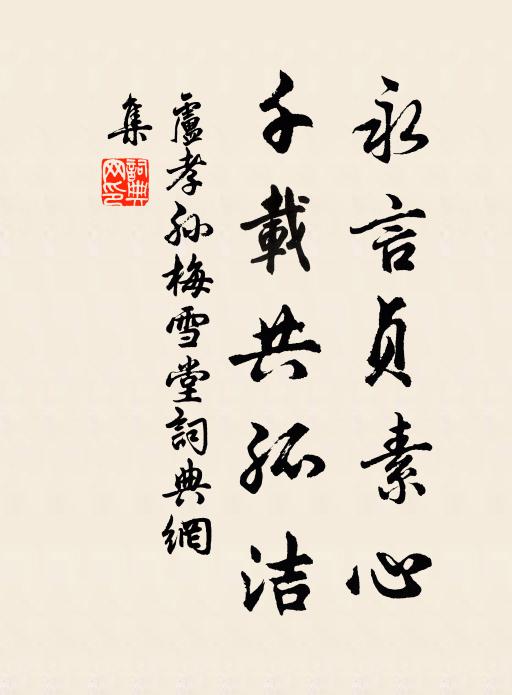 永言貞素心
千載共孤洁
盧孝孙梅雪堂詞典網
集
詞典
网印